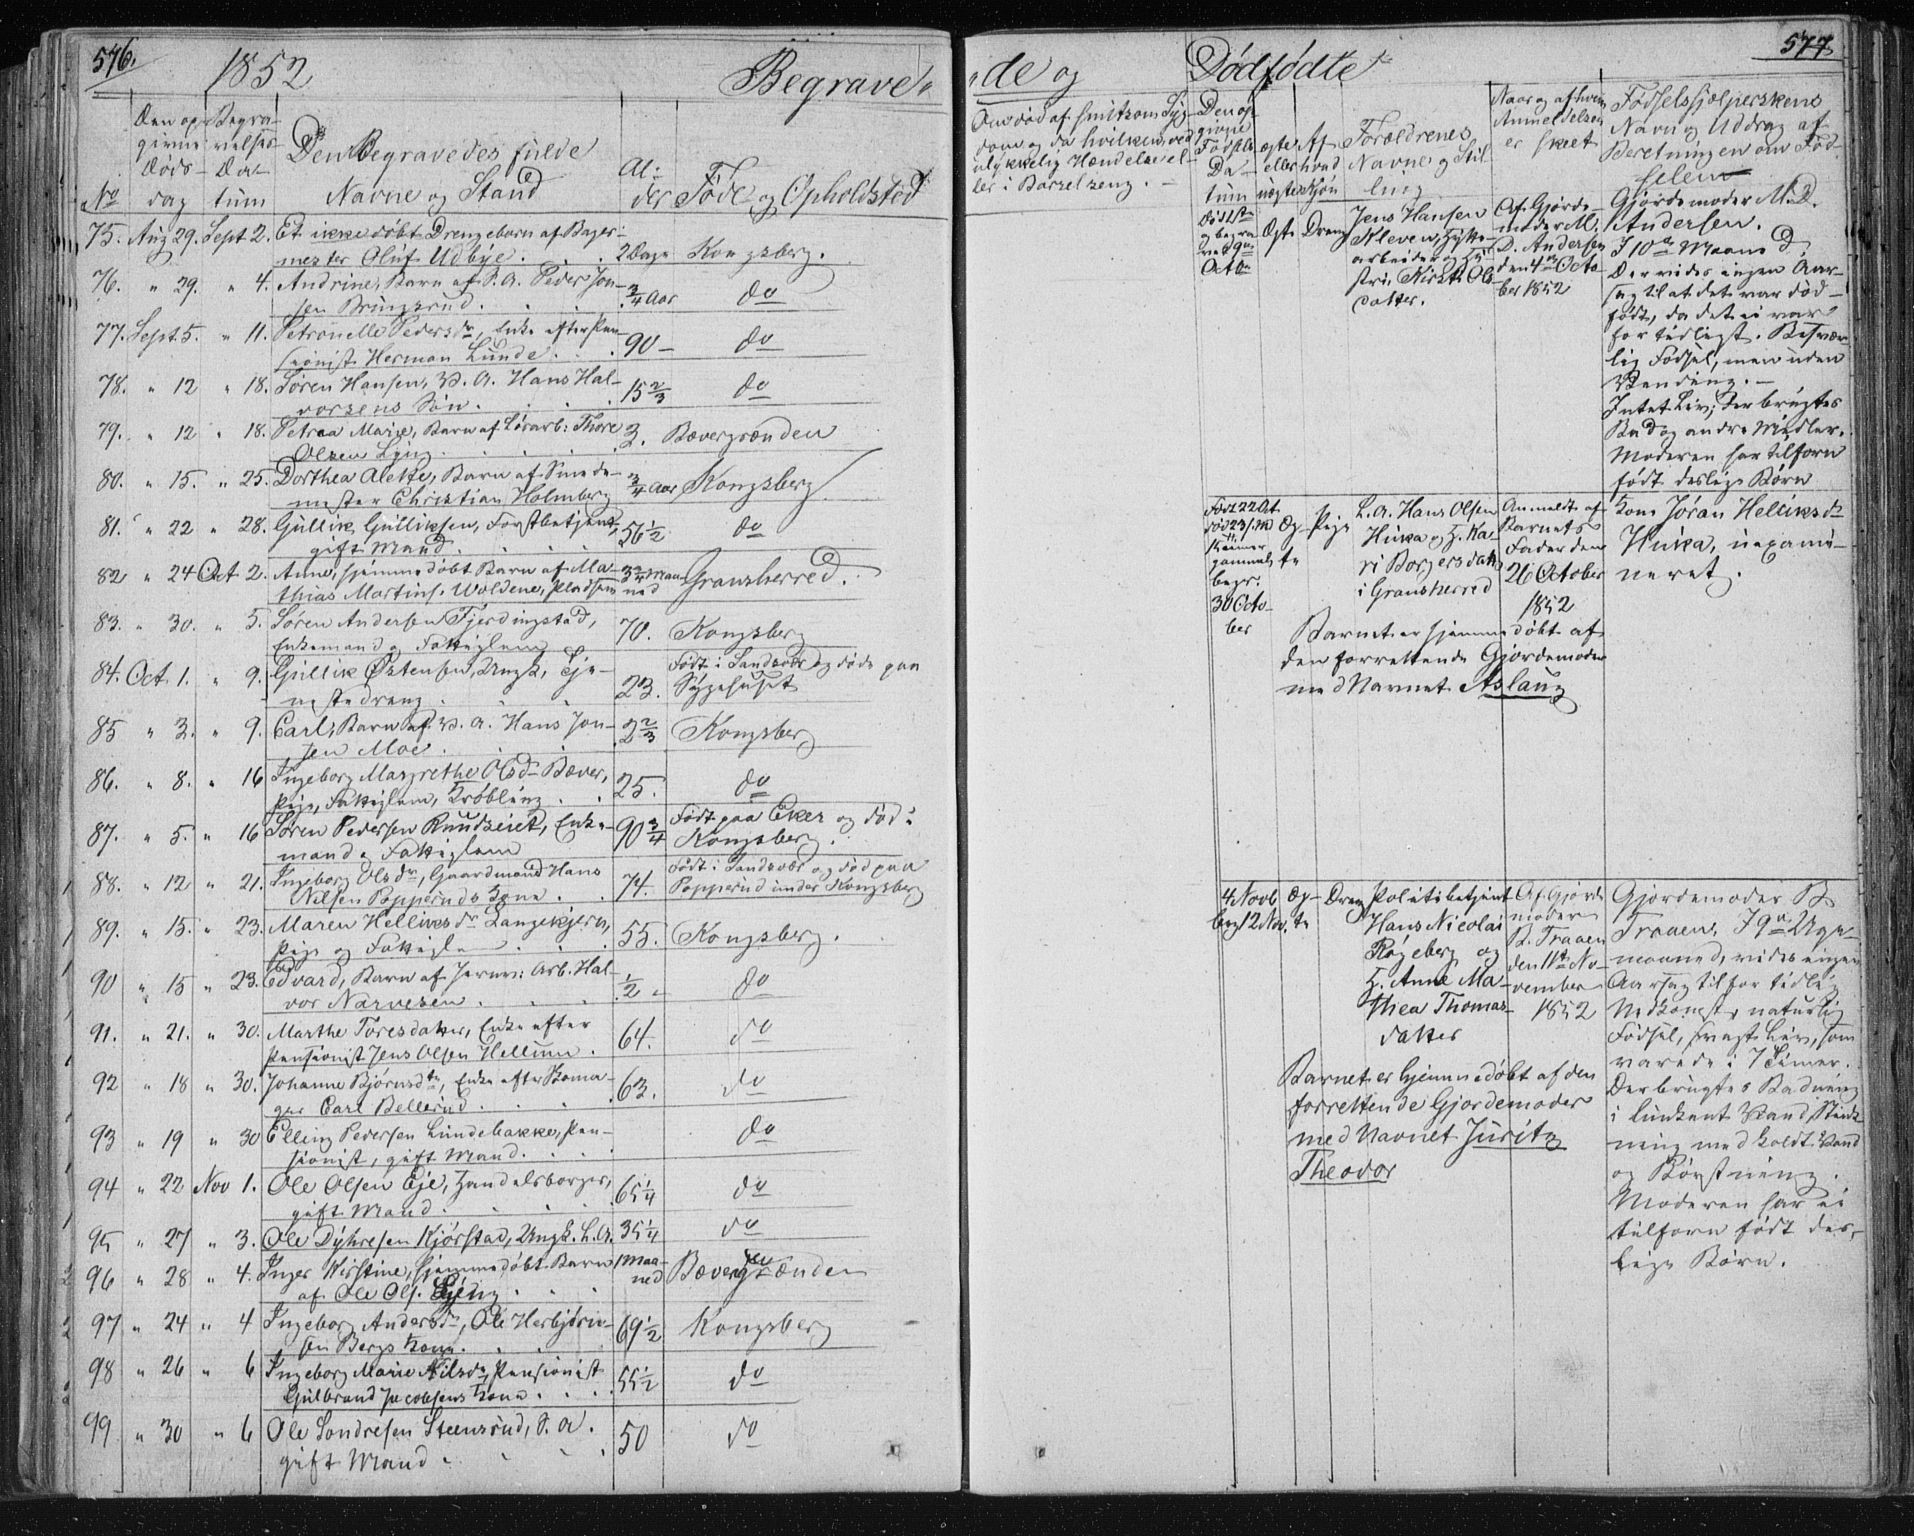 576.
1852
Begrave-
Den op- Begra-
givne velses
Døds- Da-
No dag tum
Den Begravedes fulde
Navne og Stand
Al-
der Føde og Opholdsted
75. Aug 29. Sept 2. Et ikke døbt Drengebarn af Bager-
mester Oluf Udbye. 2 Dage Kongsberg.
76. " 29. " 4. Andrine, Barn af S. A. Peder Jon-
sen Bringsrud 3/4 Aar do
77. Sept. 5. " 11. Petronelle Pedersdr, Enke efter Pen-
sionist Herman Lunde. 90 - do
78. " 12 " 18. Søren Hansen, V. A. Hans Hal-
vorsens Søn. 15 2/3 do
79. " 12 " 18. Petrea Marie, Barn af Løsarb: Thore
Olsen Lyng 3. Bævergrænden
80. " 15. " 25. Dorthea Alette, Barn af Smede-
mester Christian Holmberg 3/4 Aar Kongsberg
81. " 22 " 28. Gullik Gulliksen, Forstbetjent,
gift Mand 56 1/2 do
82 " 24 Oct 2. Anne, hjemmedøbt Barn af Ma-
thias Martins. Woldene, Pladsm 3 3/4 Maa-
ned Gransherred.
83. " 30. " 5. Søren Andersen Fjerdingstad,
Enkemand og Fattiglem 70. Kongsberg
84. Oct 1. " 9. Gullik Østensen, Ungk, Tje-
nestedreng. 23. Født i Sandsvær og døde paa
Sygehuset
85 " 3. " 9. Carl, Barn af V. A. Hans Jon-
sen Moe. 2 2/3 Kongsberg
86. " 8. " 16 Ingeborg Margrethe Olsdr Bæver,
Pige, Fattiglem, Krøbling 25. do
87. " 5. " 16 Søren Pedersen Knudseiet, Enke-
mand og Fattiglem 90 3/4 Født paa Eker og død i
Kongsberg.
88. " 12 " 21. Ingeborg Olsdr, Gaardmand Hans
Nilsen Popperuds Kone 74. Født i Sandsvær og død paa
Popperud under Kongsberg
89. " 15. " 23. Maren Helliksdr Langekjern,
Pige og Fattiglem 55. Kongsberg.
90 " 15 " 23. Edvard, Barn af Jernv: Arb. Hal-
vor Narvesen 1/2 - do
91. " 21. " 30. Marthe Toresdatter, Enke efter
Pensionist Jens Olsen Hellum. 64. do
92 " 18 " 30. Johanne Bjørnsdtr, Enke efter Skoma-
ger Carl Bellerud 63. do
93 " 19 " 30 Elling Pedersen Lundebakke, Pen-
sionist, gift Mand. do
94 " 22 Nov 1. Ole Olsen Eje, Handelsborger,
gift Mand. 65 1/4 do
95 " 27 " 3. Ole Dyhresen Kjørstad, Ungk. L. A. 35 1/4 do
96 " 28 " 4. Inger Kirstine, hjemmedøbt Barn
af Ole Ols. Lyng 1 Maa-
ned Bævergrænden
97 " 24 " 4 Ingeborg Andersdr, Ole Herbjørn-
sen Bergs Kone. 69 1/2 Kongsberg
98 " 26 " 6 Ingeborg Marie Nilsdr, Pensionist
Gulbrand Jacobsens Kone 55 1/2 do
99 " 30 " 6 Ole Sondresen Steensrud, S. A.
gift Mand 50 do
577
-de og Dødfødte
Om død af smitsom Syg-
dom og da hvilken, ved
ulykkelig Hændelse el-
ler i Barselseng. -
Den op-
givne
Fødsels
Da-
tum
ægte
eller
uægte
Af
hvad
Kjøn
Forældrenes
Navne og Stil-
ling
Naar og af hvem
Anmeldelsen
er skeet
Fødselshjælperskens
Navn og Uddrag af
Beretningen om Fød-
selen
og begra-
vet 9de
Octbr
Ægte Dreng
Jens Hansen
Kleven, Hytte-
arbeider og Hu-
stru, Kirsti Ols-
datter.
Af Gjorde-
moder M.
D. Andersen
den 4de Octo-
ber 1852
Gjordemoder M. D.
Andersen.
I 10de Maaned.
Der vides ingen Aar-
sag til at det var død-
født, da det ei var
for tidligt. Besvær-
lig Fødsel, men uden
Vending. -
Intet Liv; Der brugtes
Bad og andre Midler.
Moderen har tilforn
født deslige Børn
Født 22 Oct
død 23 s.M
gammel
begr.
30 Octo-
ber
Æg-
te
Pige
L. A. Hans Olsen
Huka og H. Ka-
ri Borgersdatr
i Gransherred
Anmeldt af
Barnets
Fader den
26 October
1852
Kone Jøran Helliksdr
Huka, uexami-
neret.
Barnet er hjemmedøbt af
den forrettende Gjordemoder
med Navnet Aslaug
4 Novb
begr 12 Nov.
Æg-
te
Dreng
Politibetjent
Hans Nicolai
Røgeberg og
H. Anne Ma-
thea Thomas-
datter
Af Gjorde-
moder
B. Traaen
den 11te No-
vember
1852
Gjordemoder B.
Traaen, I 9de Uge-
maaned, vides ingen
Aarsag til for tidlig
Nedkomst, naturlig
Fødsel, svagt Liv, som
varede i 7 Timer.
Der brugtes Badning
i lunkent Vand, Stænk-
ning med koldt Vand
og Børstning.
Moderen har ei
tilforn født des-
lige Børn.
Barnet er hjemmedøbt af den
forrettende Gjordemoder
med Navnet Juritz
Theodor